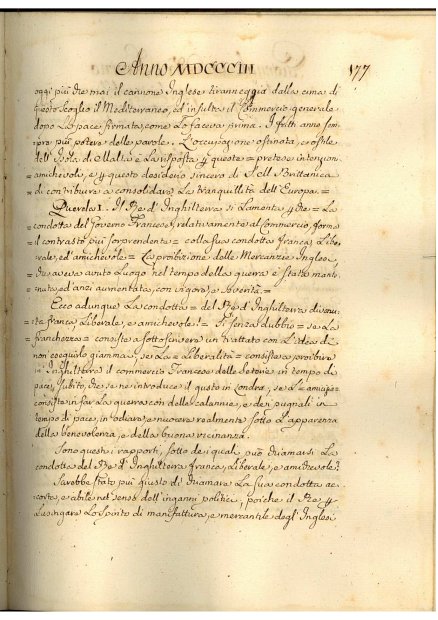 Anno MDCCCIII 177
oggi più che mai il cannone Inglese tiranneggia dalla cima di
questo scoglio il Mediterraneo, ed insulta il Commercio generale
dopo la pace firmata, come lo faceva prima. I fatti anno sem
pre più potere delle parole. L'occupazione ostinata, e ostile
dell'Isola di Malta è la risposta p queste = pretese intenzioni
amichevoli, e p questo desiderio sincero di S. M. Brittanica
di contribuire a consolidare la tranquillità dell'Europa =
Querela I. Il Re d'Inghilterra si lamenta, p che = La
condotta del Governo Francese, relativamente al Commercio, forma
= il contrasto più sorprendente = colla sua condotta franca, Libe=
= rale, ed amichevole = La proibizione delle Mercanzie Inglesi,
che aveva avuto Luogo nel tempo della guerra è stata mant
= nuta, ed anzi aumentata, con vigore, e severità =
Ecco adunque La condotta = del Re d'Inghilterra divenu
ta franca, Liberale, e amichevole! = Sì senza dubbio = se La
franchezza = consiste a sottoscrivere un trattato con L'idea di
non eseguirlo giammai, se La = Liberalità = consiste a proibire
in Inghilterra il commercio Francese delle seterie in tempo di
pace, subito che se ne introduce il gusto in Londra, se L'amicizia =
consiste in far La guerra con delle calunnie, e dei pugnali in
tempo di pace, in odiare, e nuocere realmente sotto L'apparenza
della benevolenza, e della buona vicinanza.
Sono questi i rapporti, sotto dei quali può chiamarsi La
condotta del Re d'Inghilterra franca, Liberale, e amichevole?
Sarebbe stato più giusto di chiamare La sua condotta ac=
corta, e abile nel senso dell'inganni politici, poiche il Re p
Lusingare Lo spirito di manifattura, e mercantile degl'Inglesi